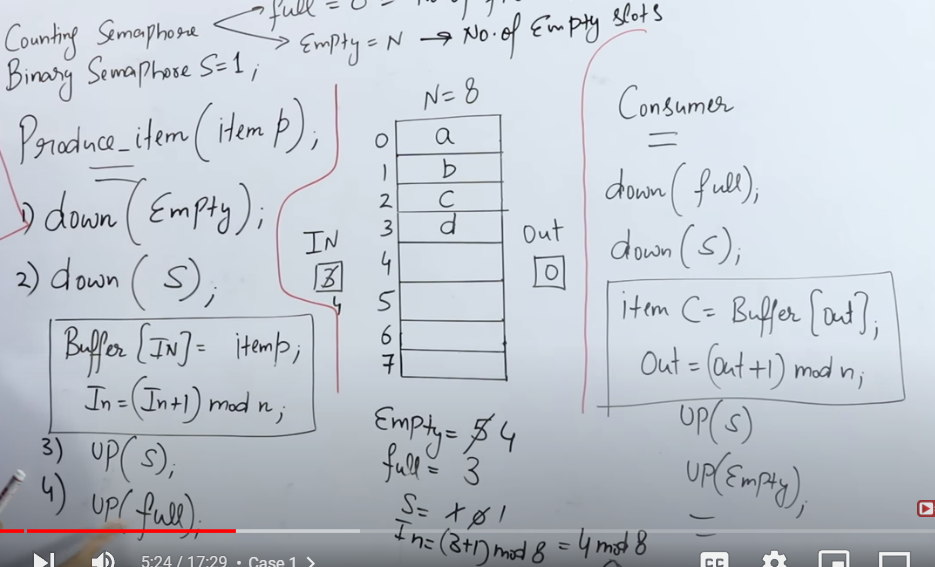 full = 0
Counting Semaphore
Empty = N → No. of Empty slots
Binary Semaphore S=1;
Produce_item(item p);
1) down(Empty);
2) down(S);
Buffer[IN] = itemp;
In = (In+1) mod n;
3) UP(S);
4) UP(full);
N=8
0 a
1 b
2 c
3 d
4
5
6
7
IN
3
4
Out
0
Empty = 5 4
full = 3
S = 1 0 1
In = (3+1) mod 8 = 4 mod 8
Consumer
down(full);
down(S);
item C = Buffer[out];
Out = (Out+1) mod n;
UP(S)
UP(Empty);
5:24 / 17:29 • Case 1 >
CC